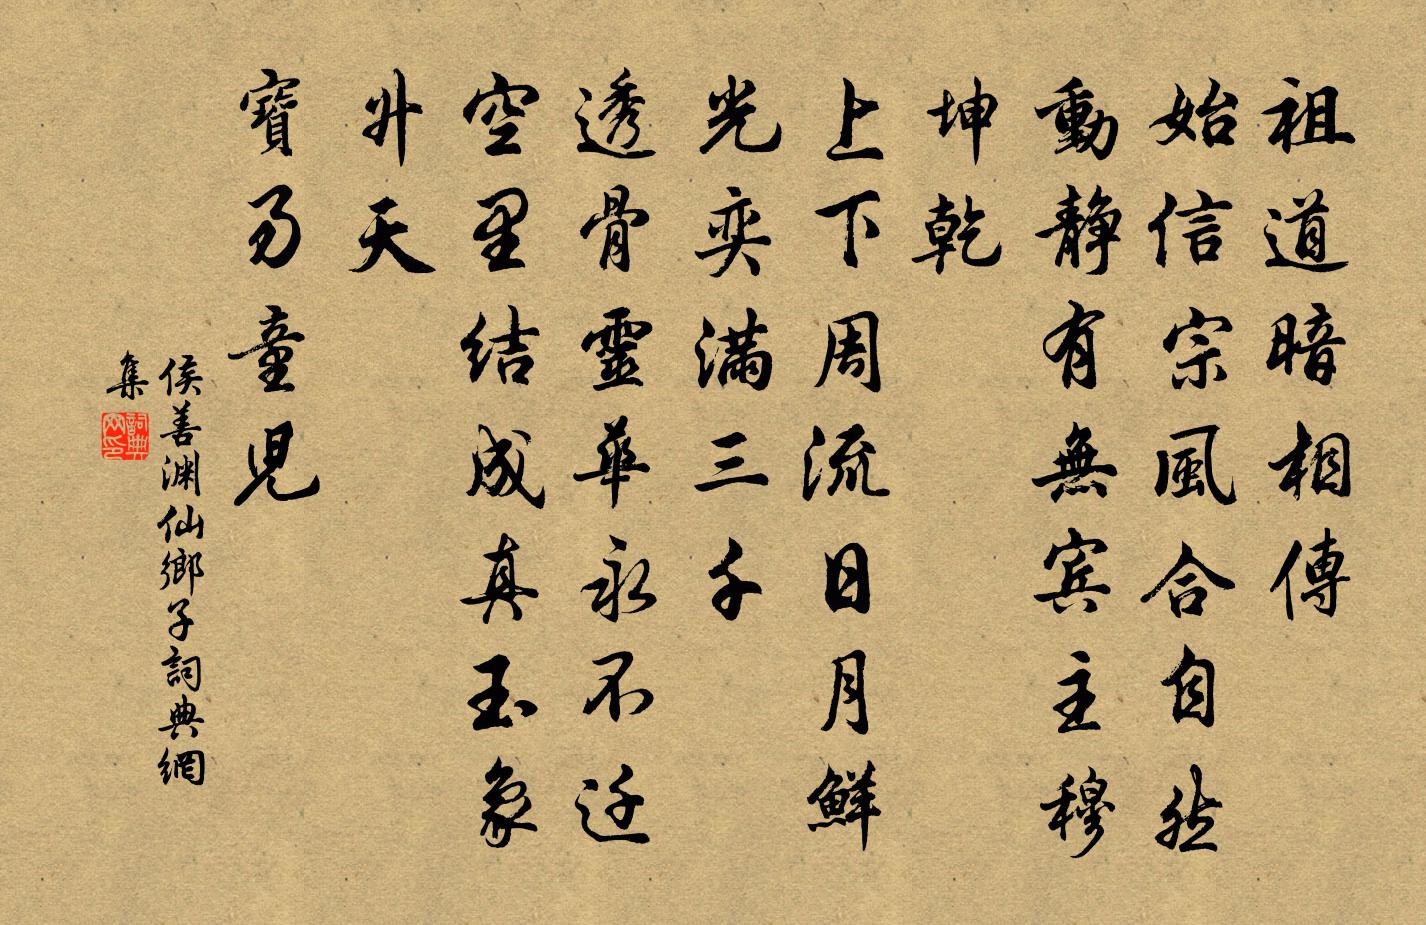 祖道暗相傳
始信宗風合自然
動靜有無賓主穆
坤乾
上下周流日月鮮
光奕滿三千
透骨靈華永不迁
空里结成真玉象
升天
寶乃童兒
侯善渊仙鄉子詞典網
集
詞典網印